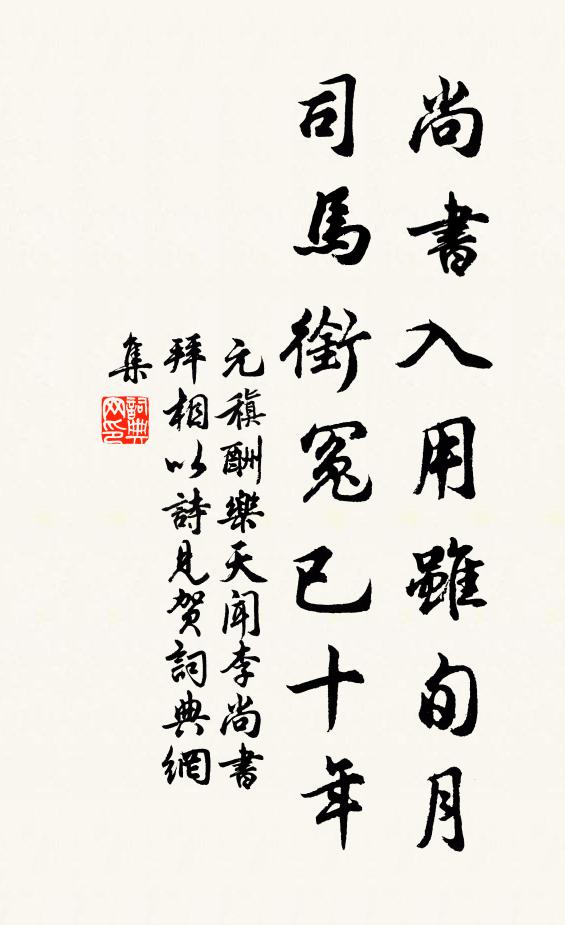 尚書入用雖旬月
司馬銜冤已十年
元稹酬樂天聞李尚書
拜相以詩見賀詞典網
集
詞典網印